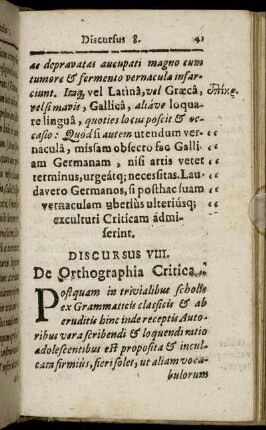 Discursus 8. 41
ac depravatas aucupati magno cum
tumore & fermento vernaculæ infar-
ciunt. Itaq; vel Latinâ, vel Græcâ,
vel si mavis, Gallicâ, aliáve loqua-
re linguâ, quoties locus poscit & oc-
casio: Quòd si autem utendum ver-
naculâ, missam obsecro fac Galli-
am Germanam, nisi artis vetet
terminus, urgeátq; necessitas. Lau-
davero Germanos, si posthac suam
vernaculam uberiùs ulteriúsq;
exculturi Criticam admi-
serint.
DISCURSUS VIII.
De Orthographia Critica.
Postquam in trivialibus scholis
ex Grammaticis classicis & ab
eruditis hinc inde receptis Auto-
ribus vera scribendi & loquendi ratio
adolescentibus est proposita & incul-
cata firmiùs, fieri solet, ut aliam voca-
bulorum